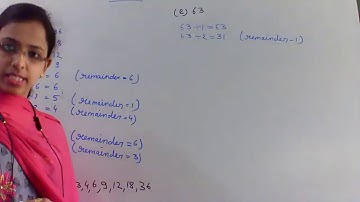 6
9
= 6 (remainder = 6)
= 6
= 5 (remainder = 1)
= 4 (remainder = 4)
(remainder = 6)
(remainder = 3)
3, 4, 6, 9, 12, 18, 36
(e) 63
63 ÷ 1 = 63
63 ÷ 2 = 31 (remainder - 1)